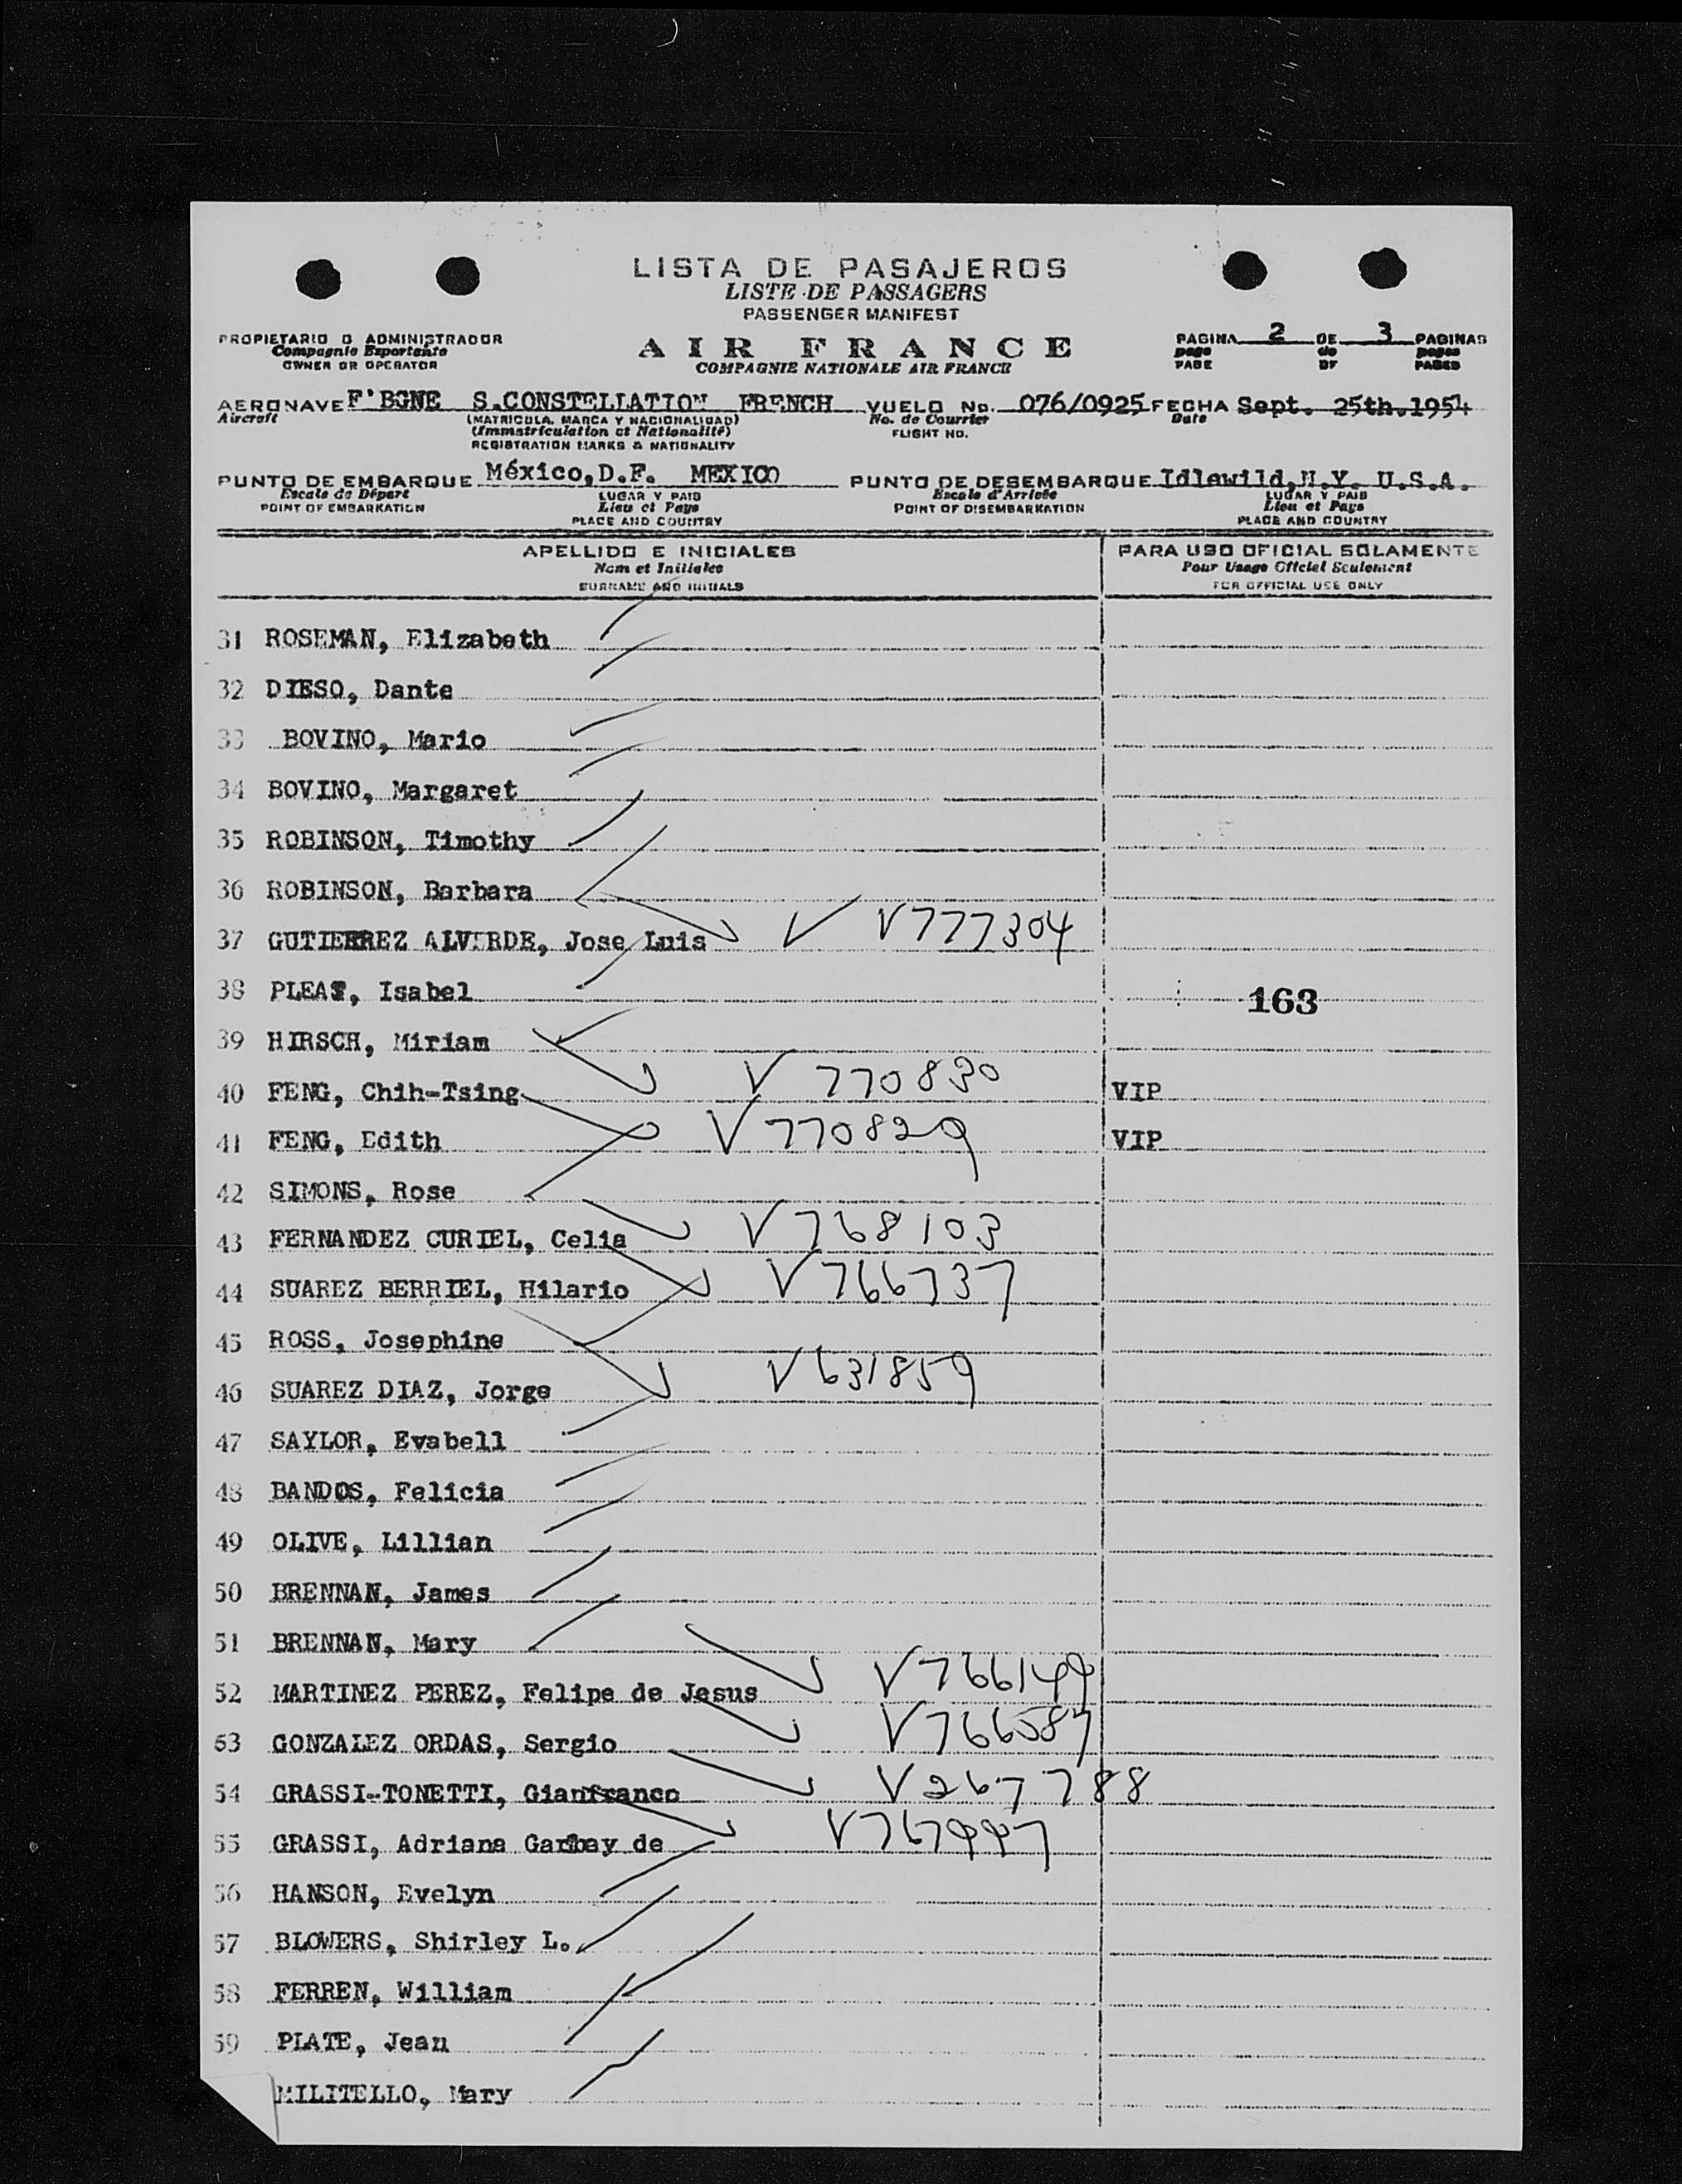 LISTA DE PASAJEROS
LISTE DE PASSAGERS
PASSENGER MANIFEST
PROPIETARIO O ADMINISTRADOR
Compagnie Exportante
OWNER OR OPERATOR
AIR FRANCE
COMPAGNIE NATIONALE AIR FRANCE
PAGINA 2 DE 3 PAGINAS
page de pages
PAGE OF PAGES
AERONAVE F'BGNE S.CONSTELLATION FRENCH VUELO No. 076/0925 FECHA Sept. 25th.1954
Aircraft (MATRICULA, MARCA Y NACIONALIDAD) No. de Courrier Date
(Immatriculation et Nationalité) FLIGHT NO.
REGISTRATION MARKS & NATIONALITY
PUNTO DE EMBARQUE México,D.F. MEXICO PUNTO DE DESEMBARQUE Idlewild,N.Y. U.S.A.
Escale de Départ LUGAR Y PAIS Escale d'Arrivée LUGAR Y PAIS
POINT OF EMBARKATION Lieu et Pays POINT OF DISEMBARKATION Lieu et Pays
PLACE AND COUNTRY PLACE AND COUNTRY
APELLIDO E INICIALES PARA USO OFICIAL SOLAMENTE
Nom et Initiales Pour Usage Officiel Seulement
SURNAME AND INITIALS FOR OFFICIAL USE ONLY
31 ROSEMAN, Elizabeth
32 DIESO, Dante
33 BOVINO, Mario
34 BOVINO, Margaret
35 ROBINSON, Timothy
36 ROBINSON, Barbara
37 GUTIERREZ ALVERDE, Jose Luis V777304
38 PLEAT, Isabel 163
39 HIRSCH, Miriam
40 FENG, Chih-Tsing V 770830 VIP
41 FENG, Edith V770829 VIP
42 SIMONS, Rose
43 FERNANDEZ CURIEL, Celia V768103
44 SUAREZ BERRIEL, Hilario V766737
45 ROSS, Josephine
46 SUAREZ DIAZ, Jorge V631859
47 SAYLOR, Evabell
48 BANDOS, Felicia
49 OLIVE, Lillian
50 BRENNAN, James
51 BRENNAN, Mary
52 MARTINEZ PEREZ, Felipe de Jesus V766149
53 GONZALEZ ORDAS, Sergio V766587
54 GRASSI-TONETTI, Gianfranco V267788
55 GRASSI, Adriana Garibay de V767997
56 HANSON, Evelyn
57 BLOWERS, Shirley L.
58 FERREN, William
59 PLATE, Jean
MILITELLO, Mary